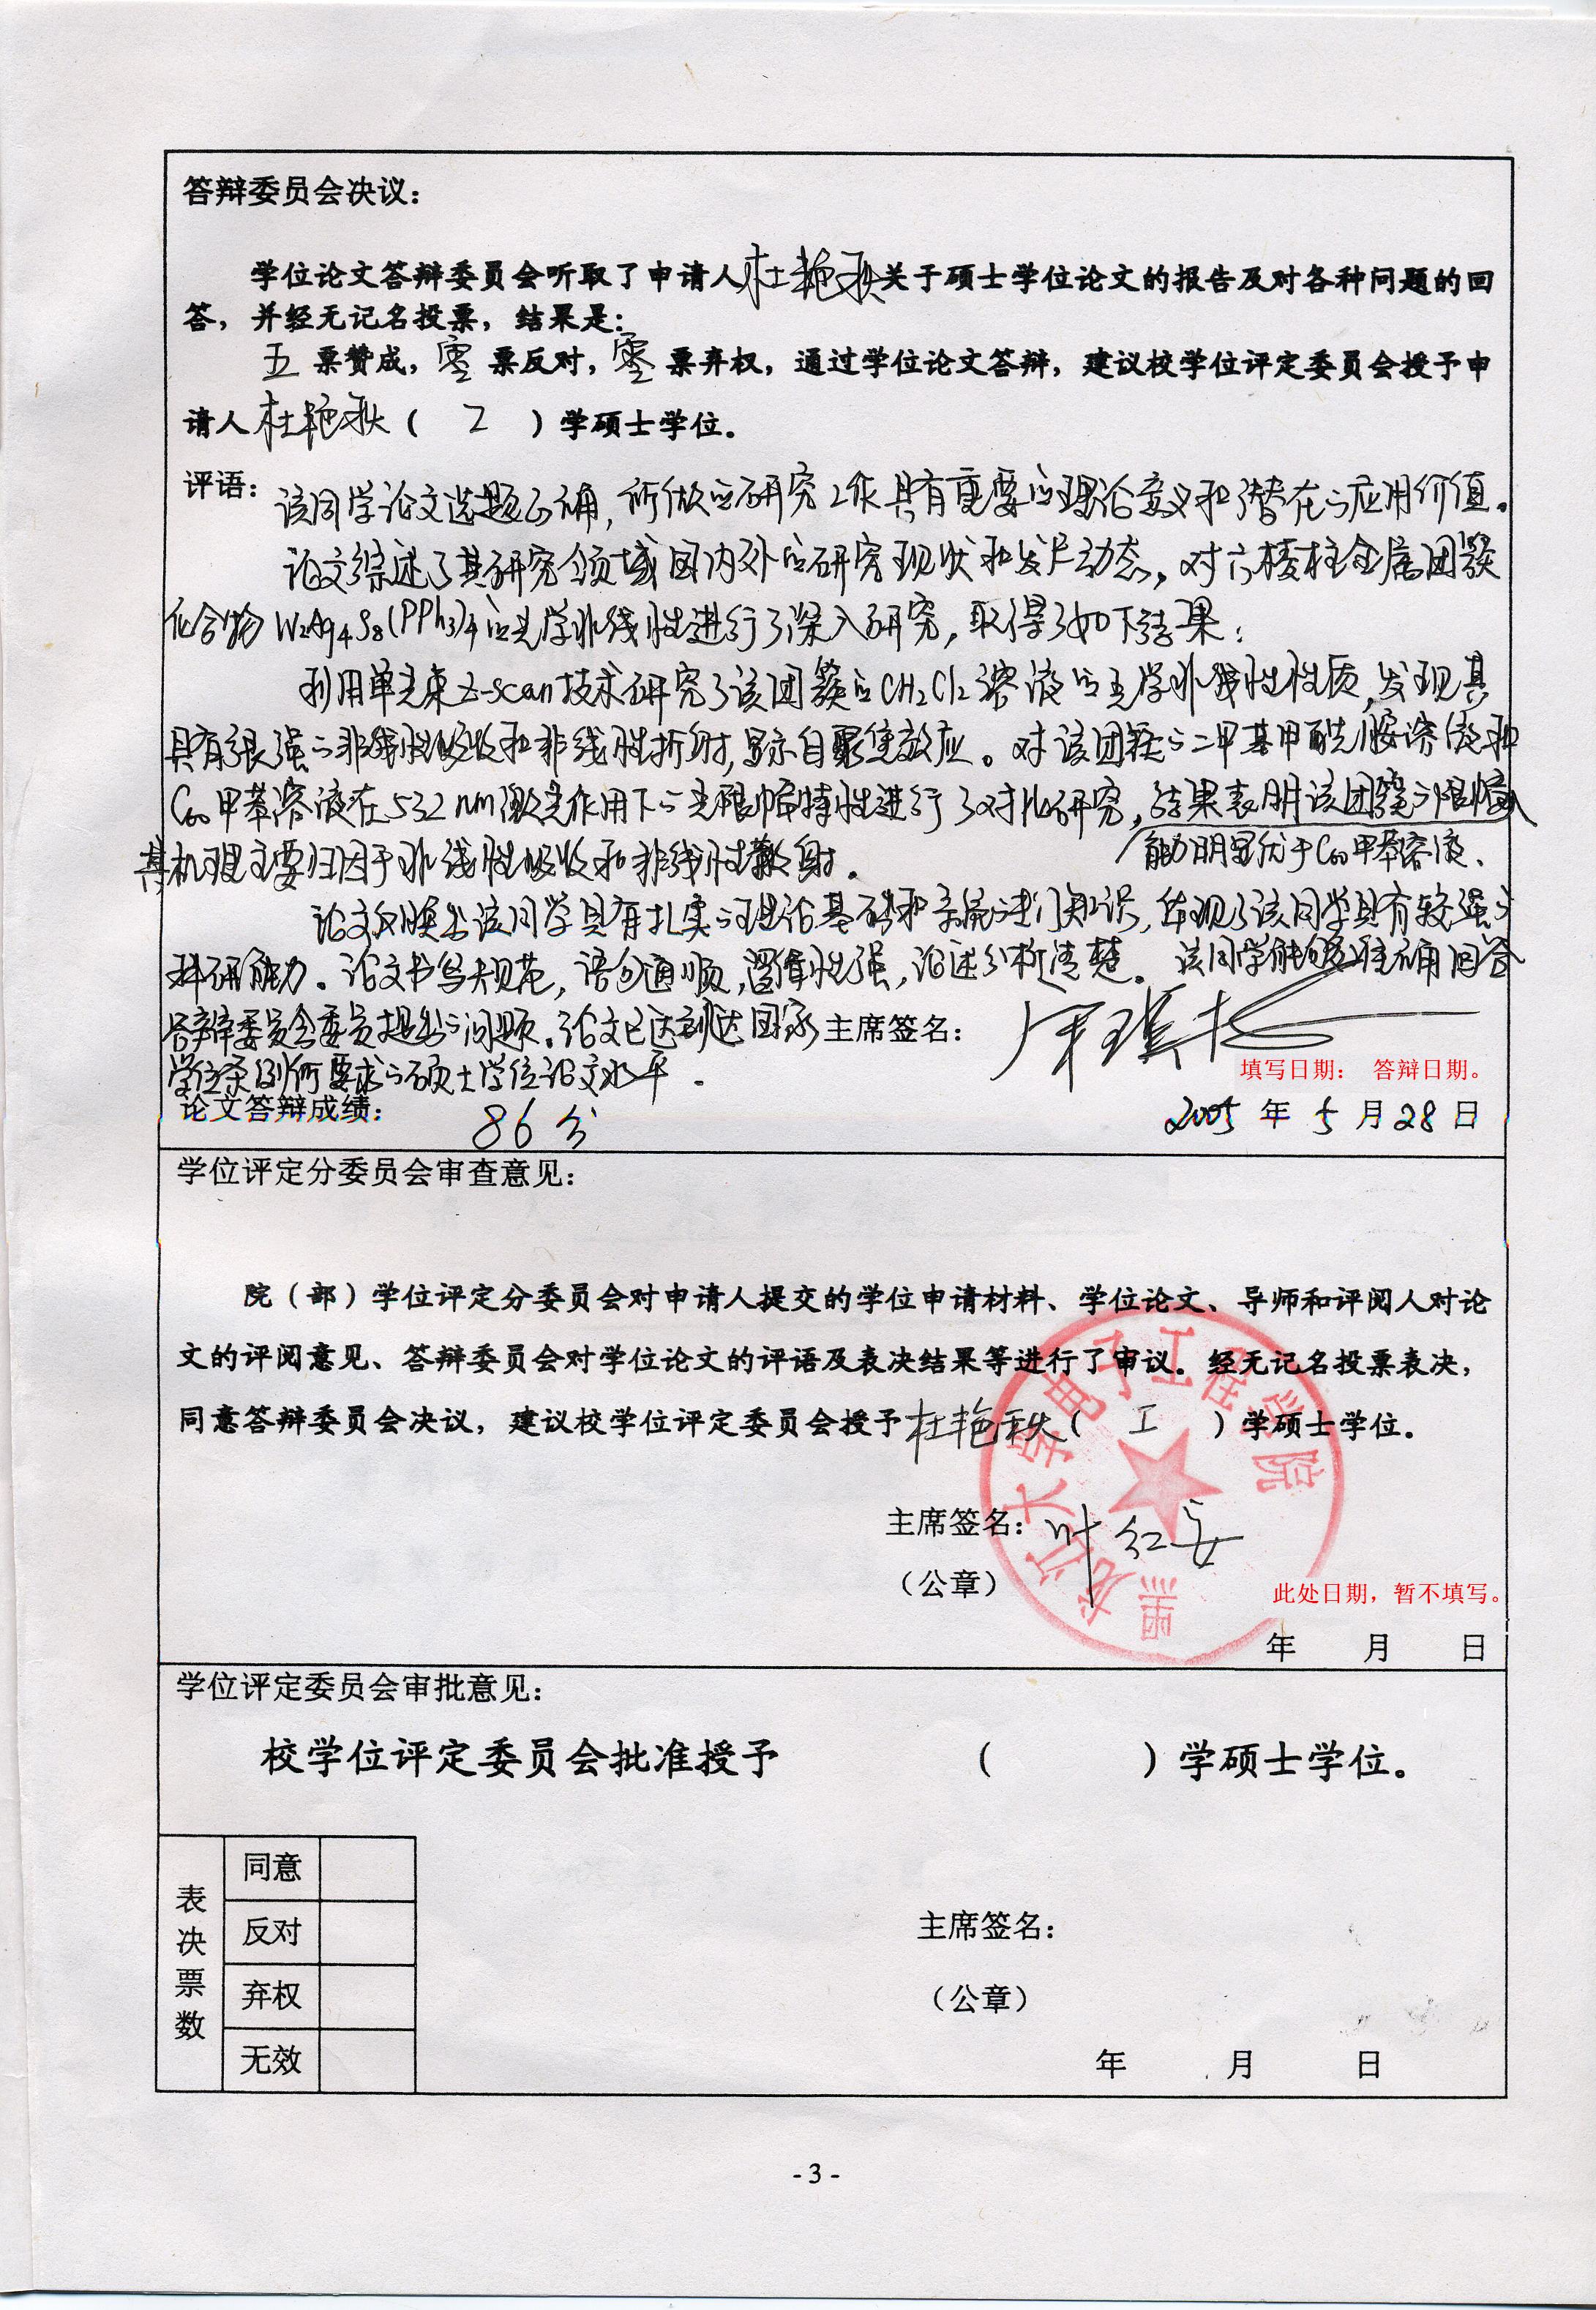 答辩委员会决议：
学位论文答辩委员会听取了申请人杜艳秋关于硕士学位论文的报告及对各种问题的回
答，并经无记名投票，结果是：
五 票赞成，零 票反对，零 票弃权，通过学位论文答辩，建议校学位评定委员会授予申
请人杜艳秋（ 工 ）学硕士学位。
评语：该同学论文选题正确，所做的研究工作具有重要的理论意义和潜在的应用价值。
论文综述了其研究领域国内外的研究现状和发展动态，对六棱柱金属团簇
化合物 W2Ag4S8(PPh3)4的光学非线性进行了深入研究，取得了如下结果：
利用单光束Z-scan技术研究了该团簇的CH2Cl2溶液的光学非线性性质，发现其
具有很强的非线性吸收和非线性折射，显示自聚焦效应。对该团簇的二甲基甲酰胺溶液和
C60甲苯溶液在532nm激光作用下的光限幅特性进行了对比研究，结果表明该团簇的限幅
能力明显优于C60甲苯溶液、
其机理主要归因于非线性吸收和非线性散射。
论文反映出该同学具有扎实的理论基础和系统的专门知识，体现了该同学具有较强的
科研能力。论文书写规范，语句通顺，逻辑性强，论述分析清楚。该同学能够准确回答
答辩委员会委员提出的问题。论文已达到国家 主席签名：
填写日期： 答辩日期。
学位条例所要求的硕士学位论文水平．
论文答辩成绩： 86分 2005 年 5 月 28 日
学位评定分委员会审查意见：
院（部）学位评定分委员会对申请人提交的学位申请材料、学位论文、导师和评阅人对论
文的评阅意见、答辩委员会对学位论文的评语及表决结果等进行了审议。经无记名投票表决，
同意答辩委员会决议，建议校学位评定委员会授予杜艳秋（ 工 ）学硕士学位。
黑龙江大学电子工程学院
主席签名：叶红安
（公章）
此处日期，暂不填写。
年 月 日
学位评定委员会审批意见：
校学位评定委员会批准授予 （ ）学硕士学位。
表决票数
同意
反对
弃权
无效
主席签名：
（公章）
年 月 日
- 3 -